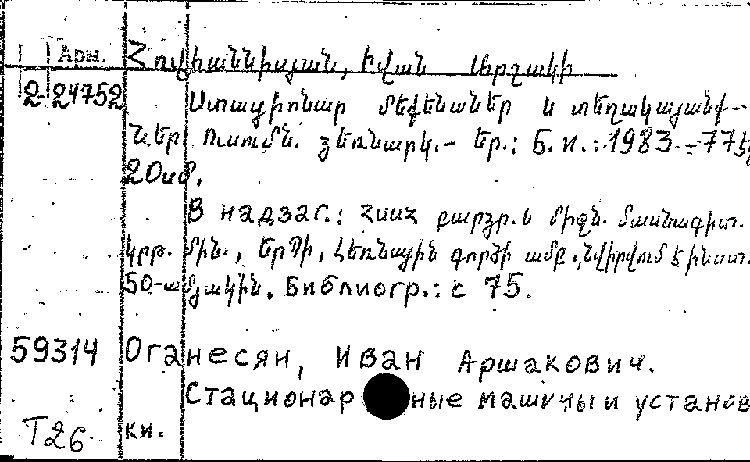 Арм. Հովհաննիսյան, Իվան Արշակի
2-24752 Ստացիոնար մեքենաներ և տեղակայանք-
ներ: Ուսումն. ձեռնարկ.- Եր.: Б.и.: 1983.-77էջ
20սմ.
В надзаг.: ՀՍՍՀ բարձր. և միջն. մասնագիտ.
կրթ. մին., ԵրՊԻ, Լեռնային գործի ամբ., նվիրվում է ինստ.
50-ամյակին. Библиогр.: с 75.
59314 Оганесян, Иван Аршакович.
Стационарные машины и установ
Т26 ки.